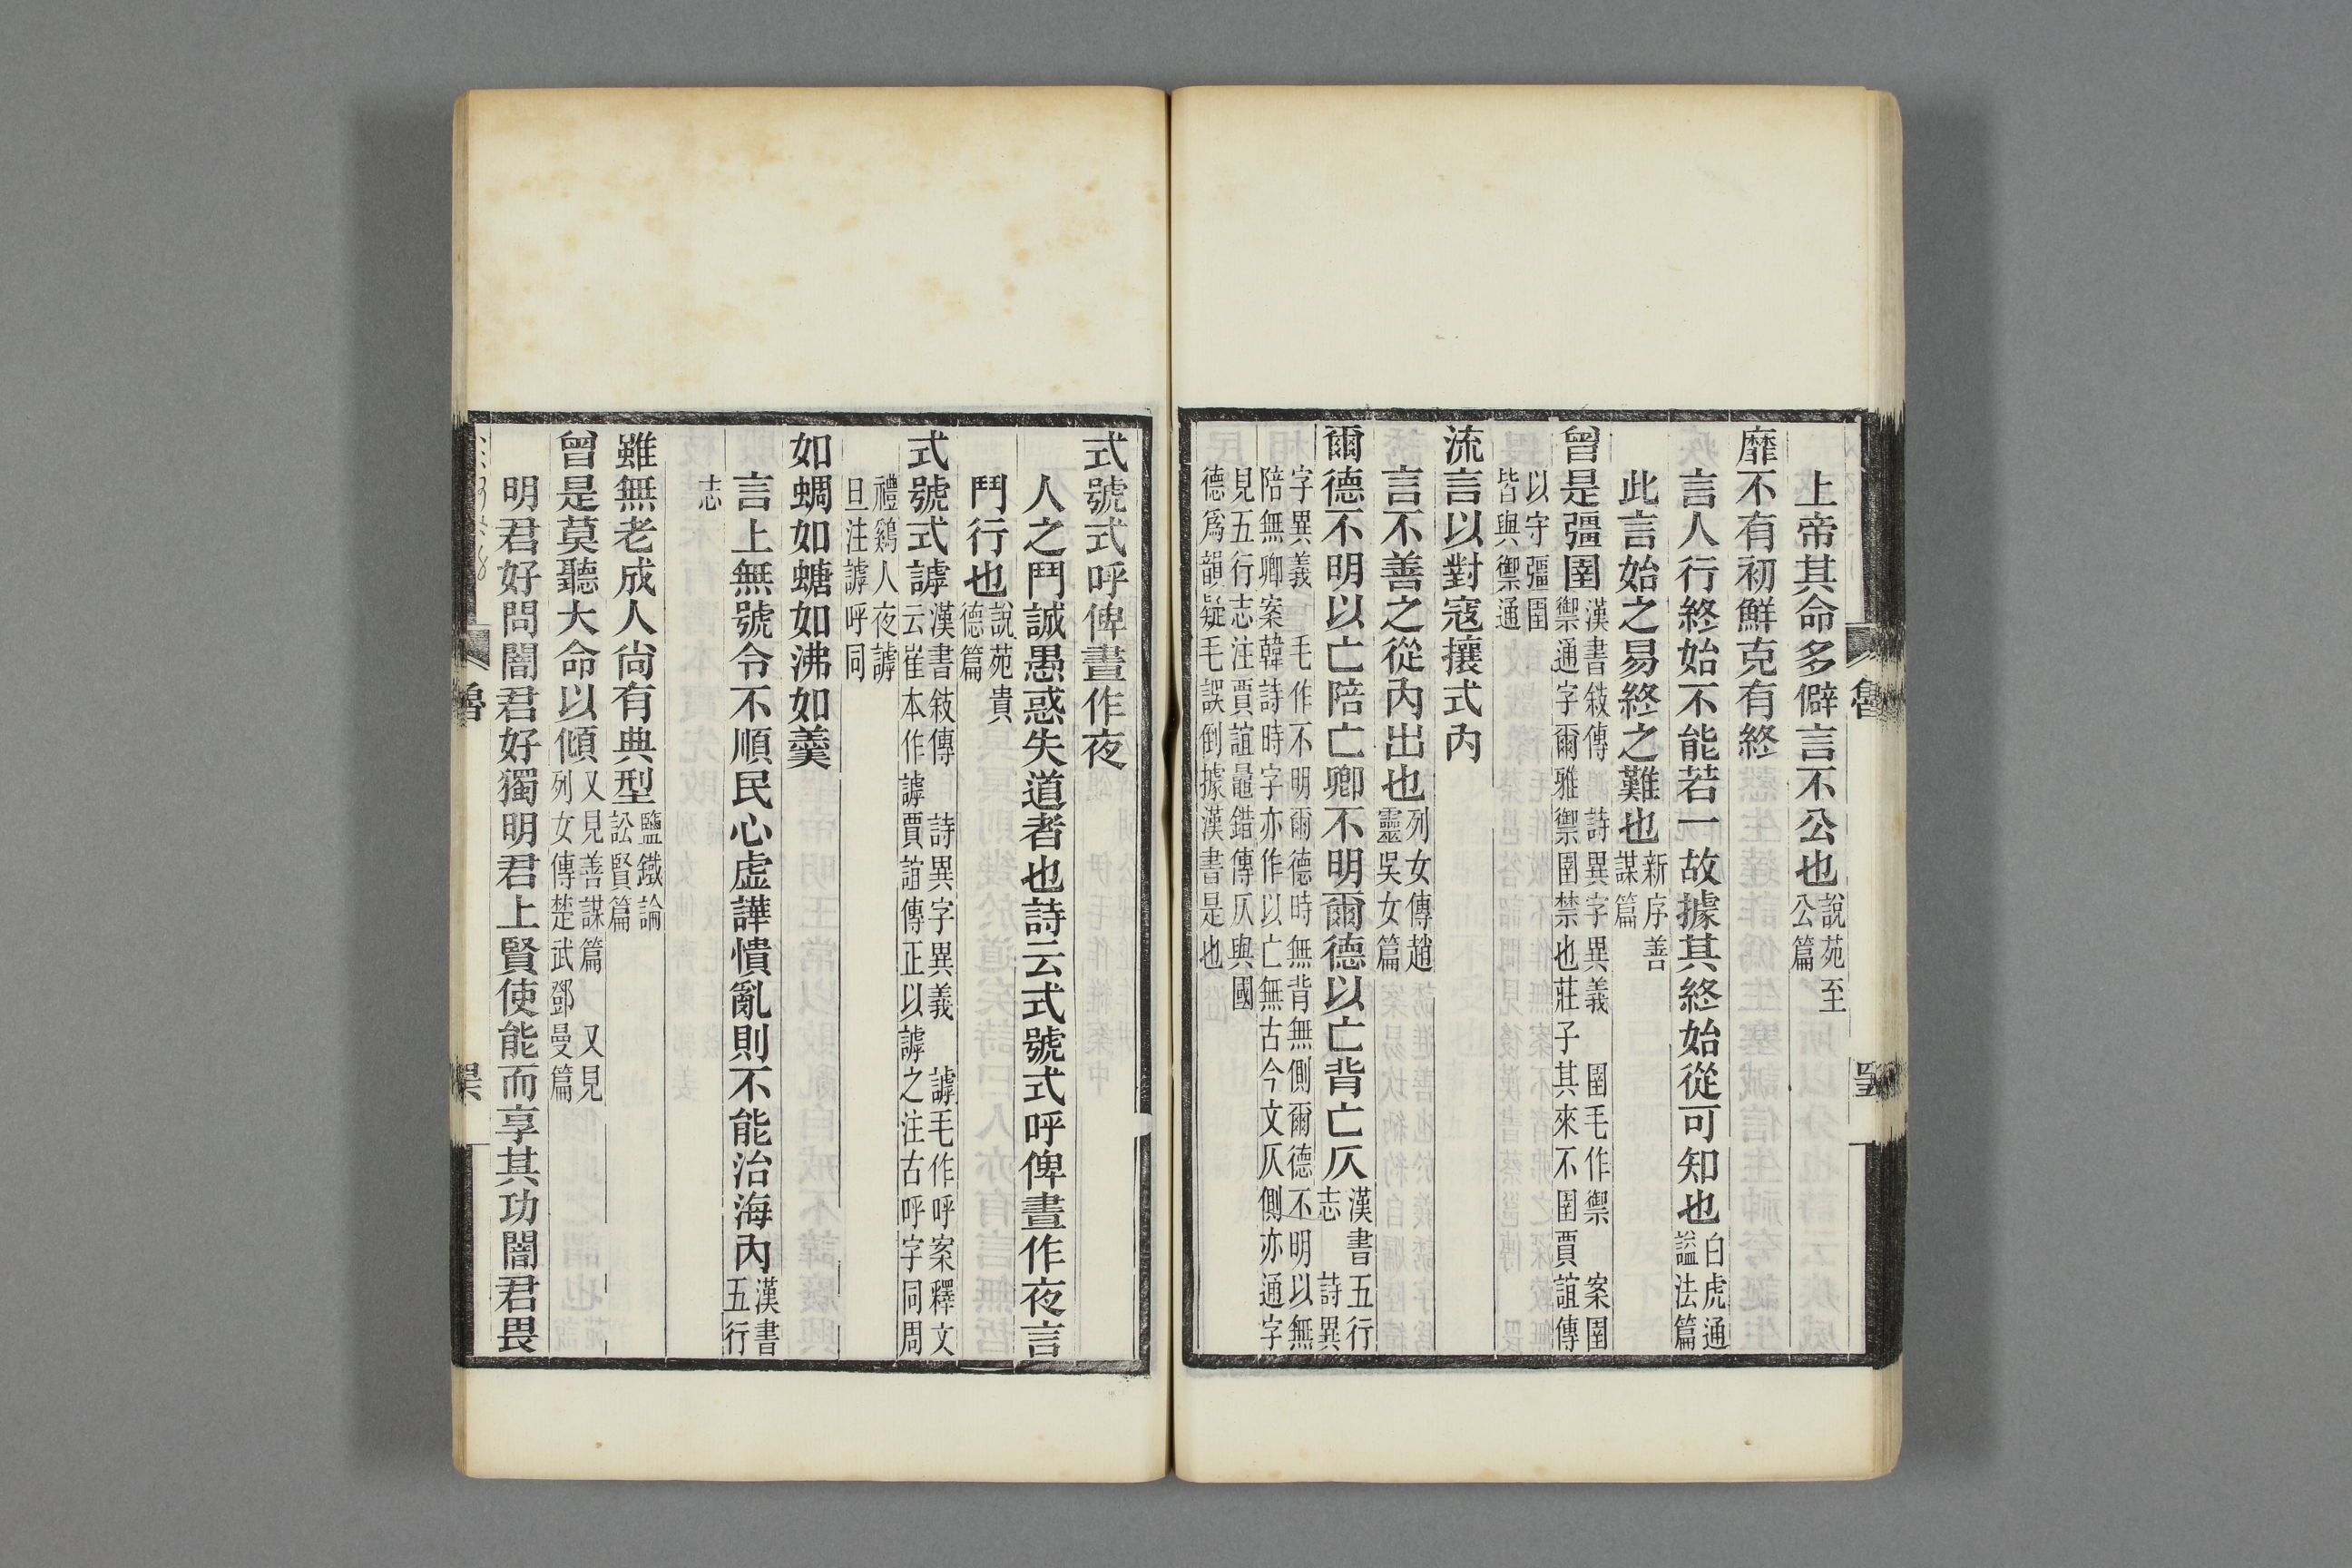 上帝其命多僻言不公也說苑至公篇
靡不有初鮮克有終
言人行終始不能若一故據其終始從可知也白虎通諡法篇
此言始之易終之難也新序善謀篇
曾是彊圉漢書敍傳 詩異字異義 圉毛作禦 案圉禦通字爾雅禦圉禁也莊子其來不圉賈誼傳
以守彊圉皆與禦通
流言以對寇攘式內
言不善之從內出也列女傳趙靈吳女篇
爾德不明以亡陪亡卿不明爾德以亡背亡仄漢書五行志 詩異
字異義 毛作不明爾德時無背無側爾德不明以無陪無卿案韓詩時字亦作以亡無古今文仄側亦通字
見五行志注賈誼鼂錯傳仄與國德爲韻疑毛誤倒據漢書是也
式號式呼俾晝作夜
人之鬥誠愚惑失道者也詩云式號式呼俾晝作夜言
鬥行也說苑貴德篇
式號式謼漢書敍傳 詩異字異義 謼毛作呼案釋文云崔本作謼賈誼傳正以謼之注古呼字同周
禮鷄人夜謼旦注謼呼同
如蜩如螗如沸如羹
言上無號令不順民心虛譁憒亂則不能治海內漢書五行
志
雖無老成人尙有典型鹽鐵論訟賢篇
曾是莫聽大命以傾又見善謀篇 又見列女傳楚武鄧曼篇
明君好問闇君好獨明君上賢使能而享其功闇君畏
魯